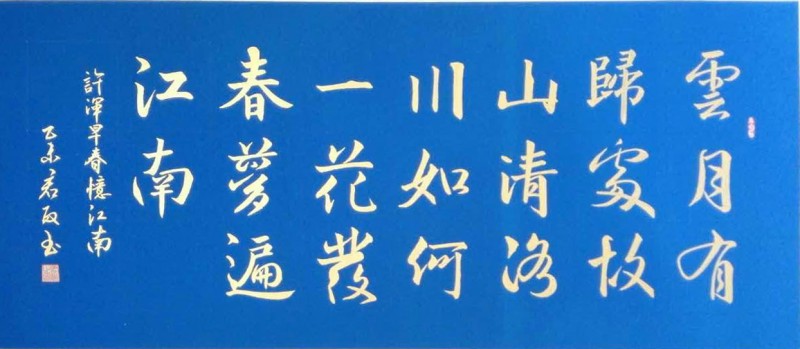 雲月有
歸處故
山清洛
川如何
一花發
春夢遍
江南
許渾早春憶江南
乙未君政書